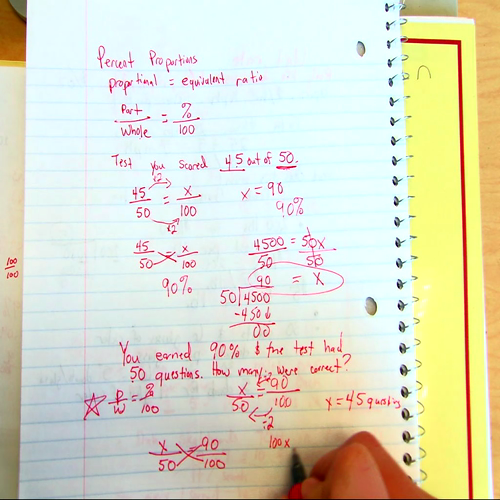 Percent Proportions
proportional = equivalent ratio
Part/Whole = %/100
Test you scored 45 out of 50.
·2
45/50 = x/100
·2
x = 90
90%
45/50 = x/100
90%
4500/50 = 50x/50
90 = x
50)4500
-450↓
00
You earned 90% & the test had
50 questions. How many were correct?
☆ P/W = %/100
x/50 = 90/100
÷2
x = 45 questions
100x
x/50 = 90/100
100/100